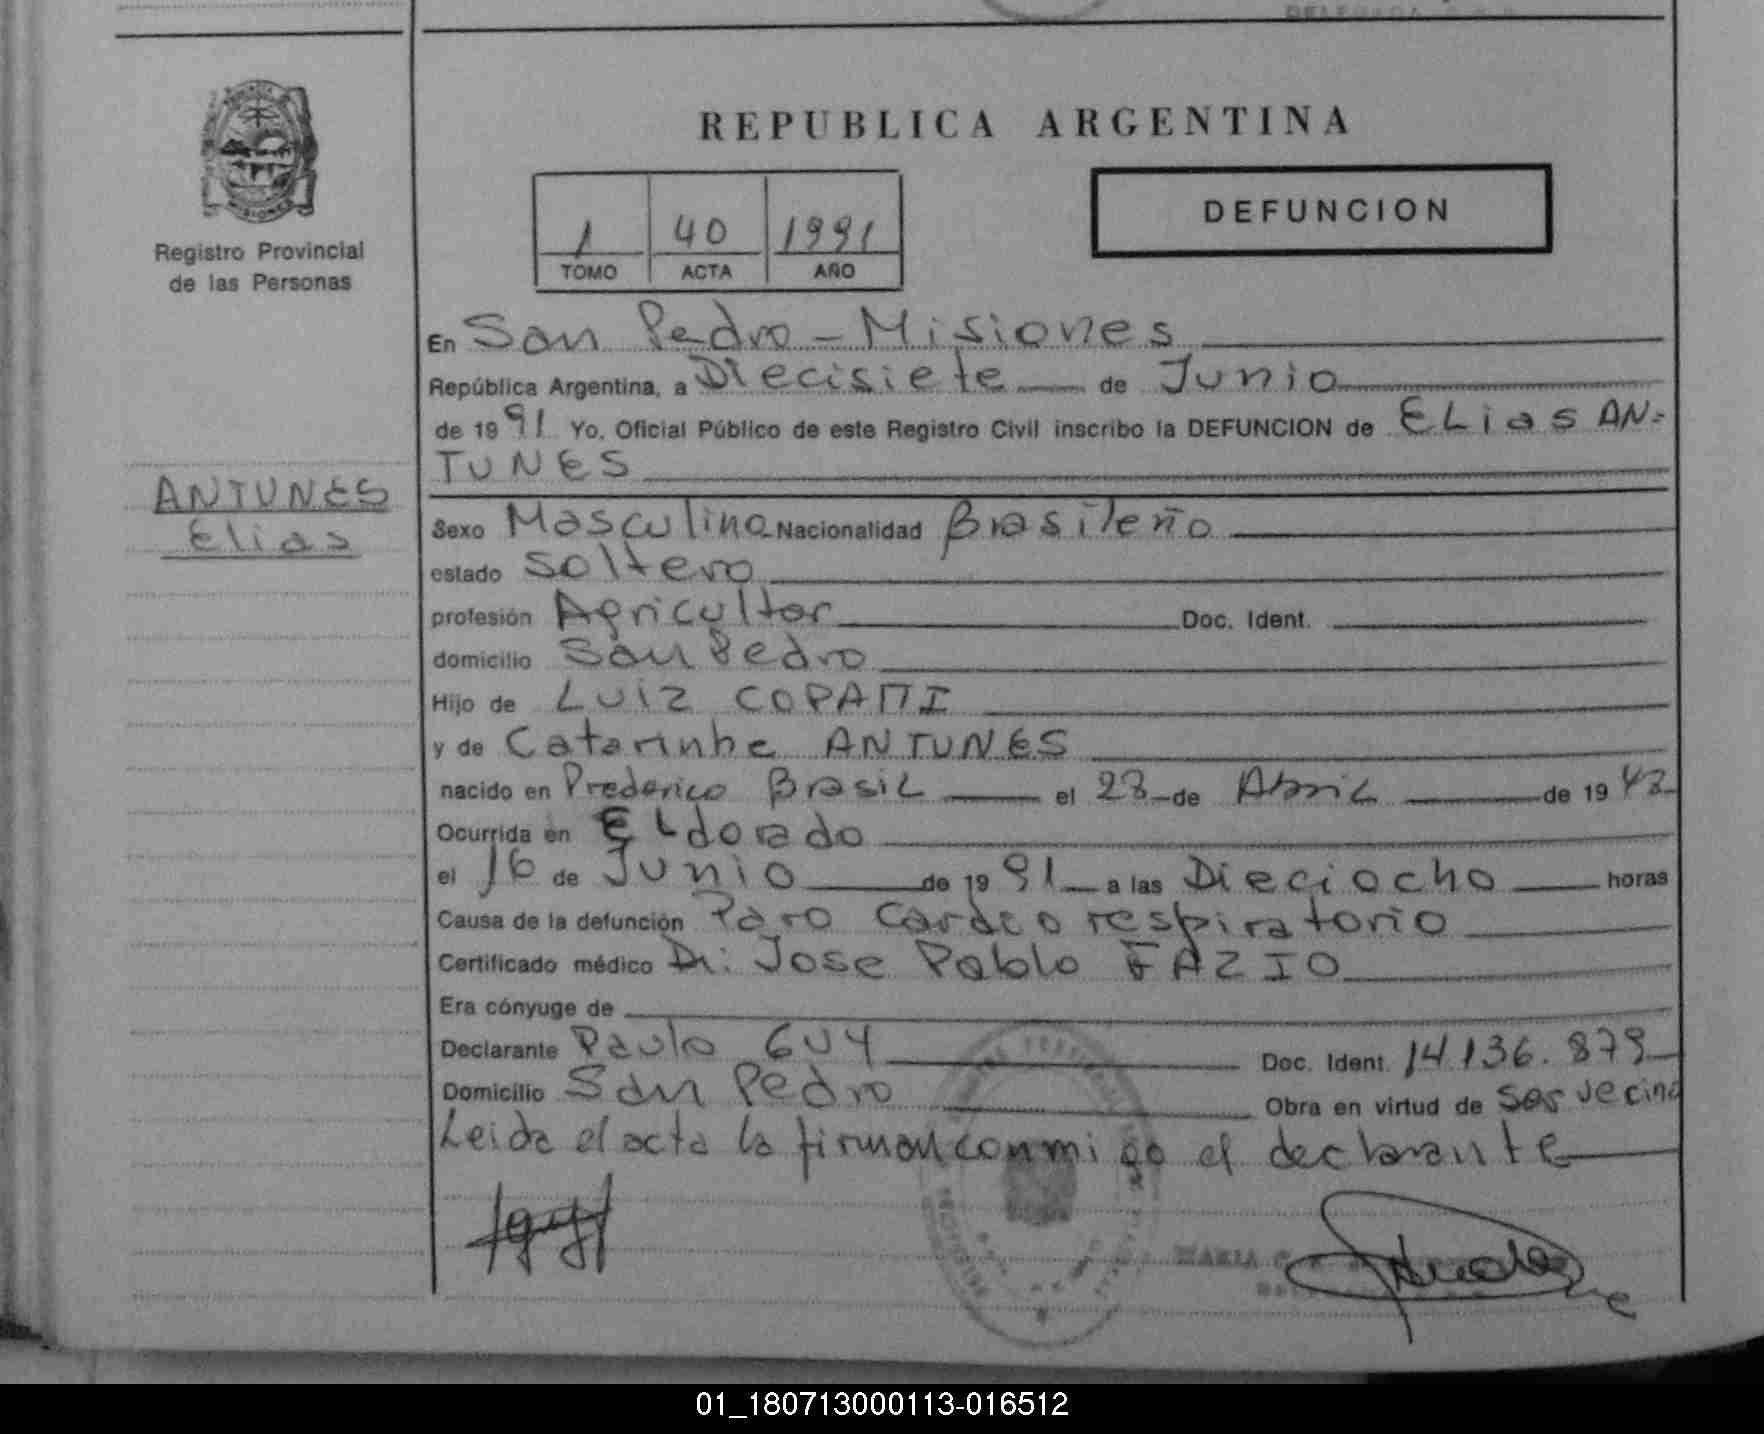 REPUBLICA ARGENTINA
DEFUNCION
1 40 1991
TOMO ACTA AÑO
Registro Provincial
de las Personas
MISIONES
En San Pedro - Misiones
República Argentina, a Diecisiete de Junio
de 1991 Yo, Oficial Público de este Registro Civil inscribo la DEFUNCION de Elias AN=
TUNES
ANTUNES
Elias
Sexo Masculino Nacionalidad Brasileño
estado Soltero
profesión Agricultor Doc. Ident.
domicilio San Pedro
Hijo de LUIZ COPATTI
y de Catarinhe ANTUNES
nacido en Prederico Brasil el 28 de Abril de 19
Ocurrida en ELdorado
el 16 de Junio de 1991 a las Dieciocho horas
Causa de la defunción Paro Cardeo respiratorio
Certificado médico Dr. Jose Pablo FAZIO
Era cónyuge de
Declarante Paulo GUY Doc. Ident. 14.136.879
Domicilio San Pedro Obra en virtud de ser vecino
Leida el acta la firman conmigo el declarante
MARIA
01_180713000113-016512